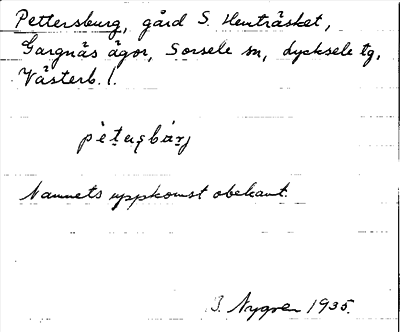 Pettersburg, gård S. Henträsket,
Gargnäs ägor, Sorsele sn, Lycksele tg,
Västerb. l.
Namnets uppkomst obekant.
B. Nygren 1935.